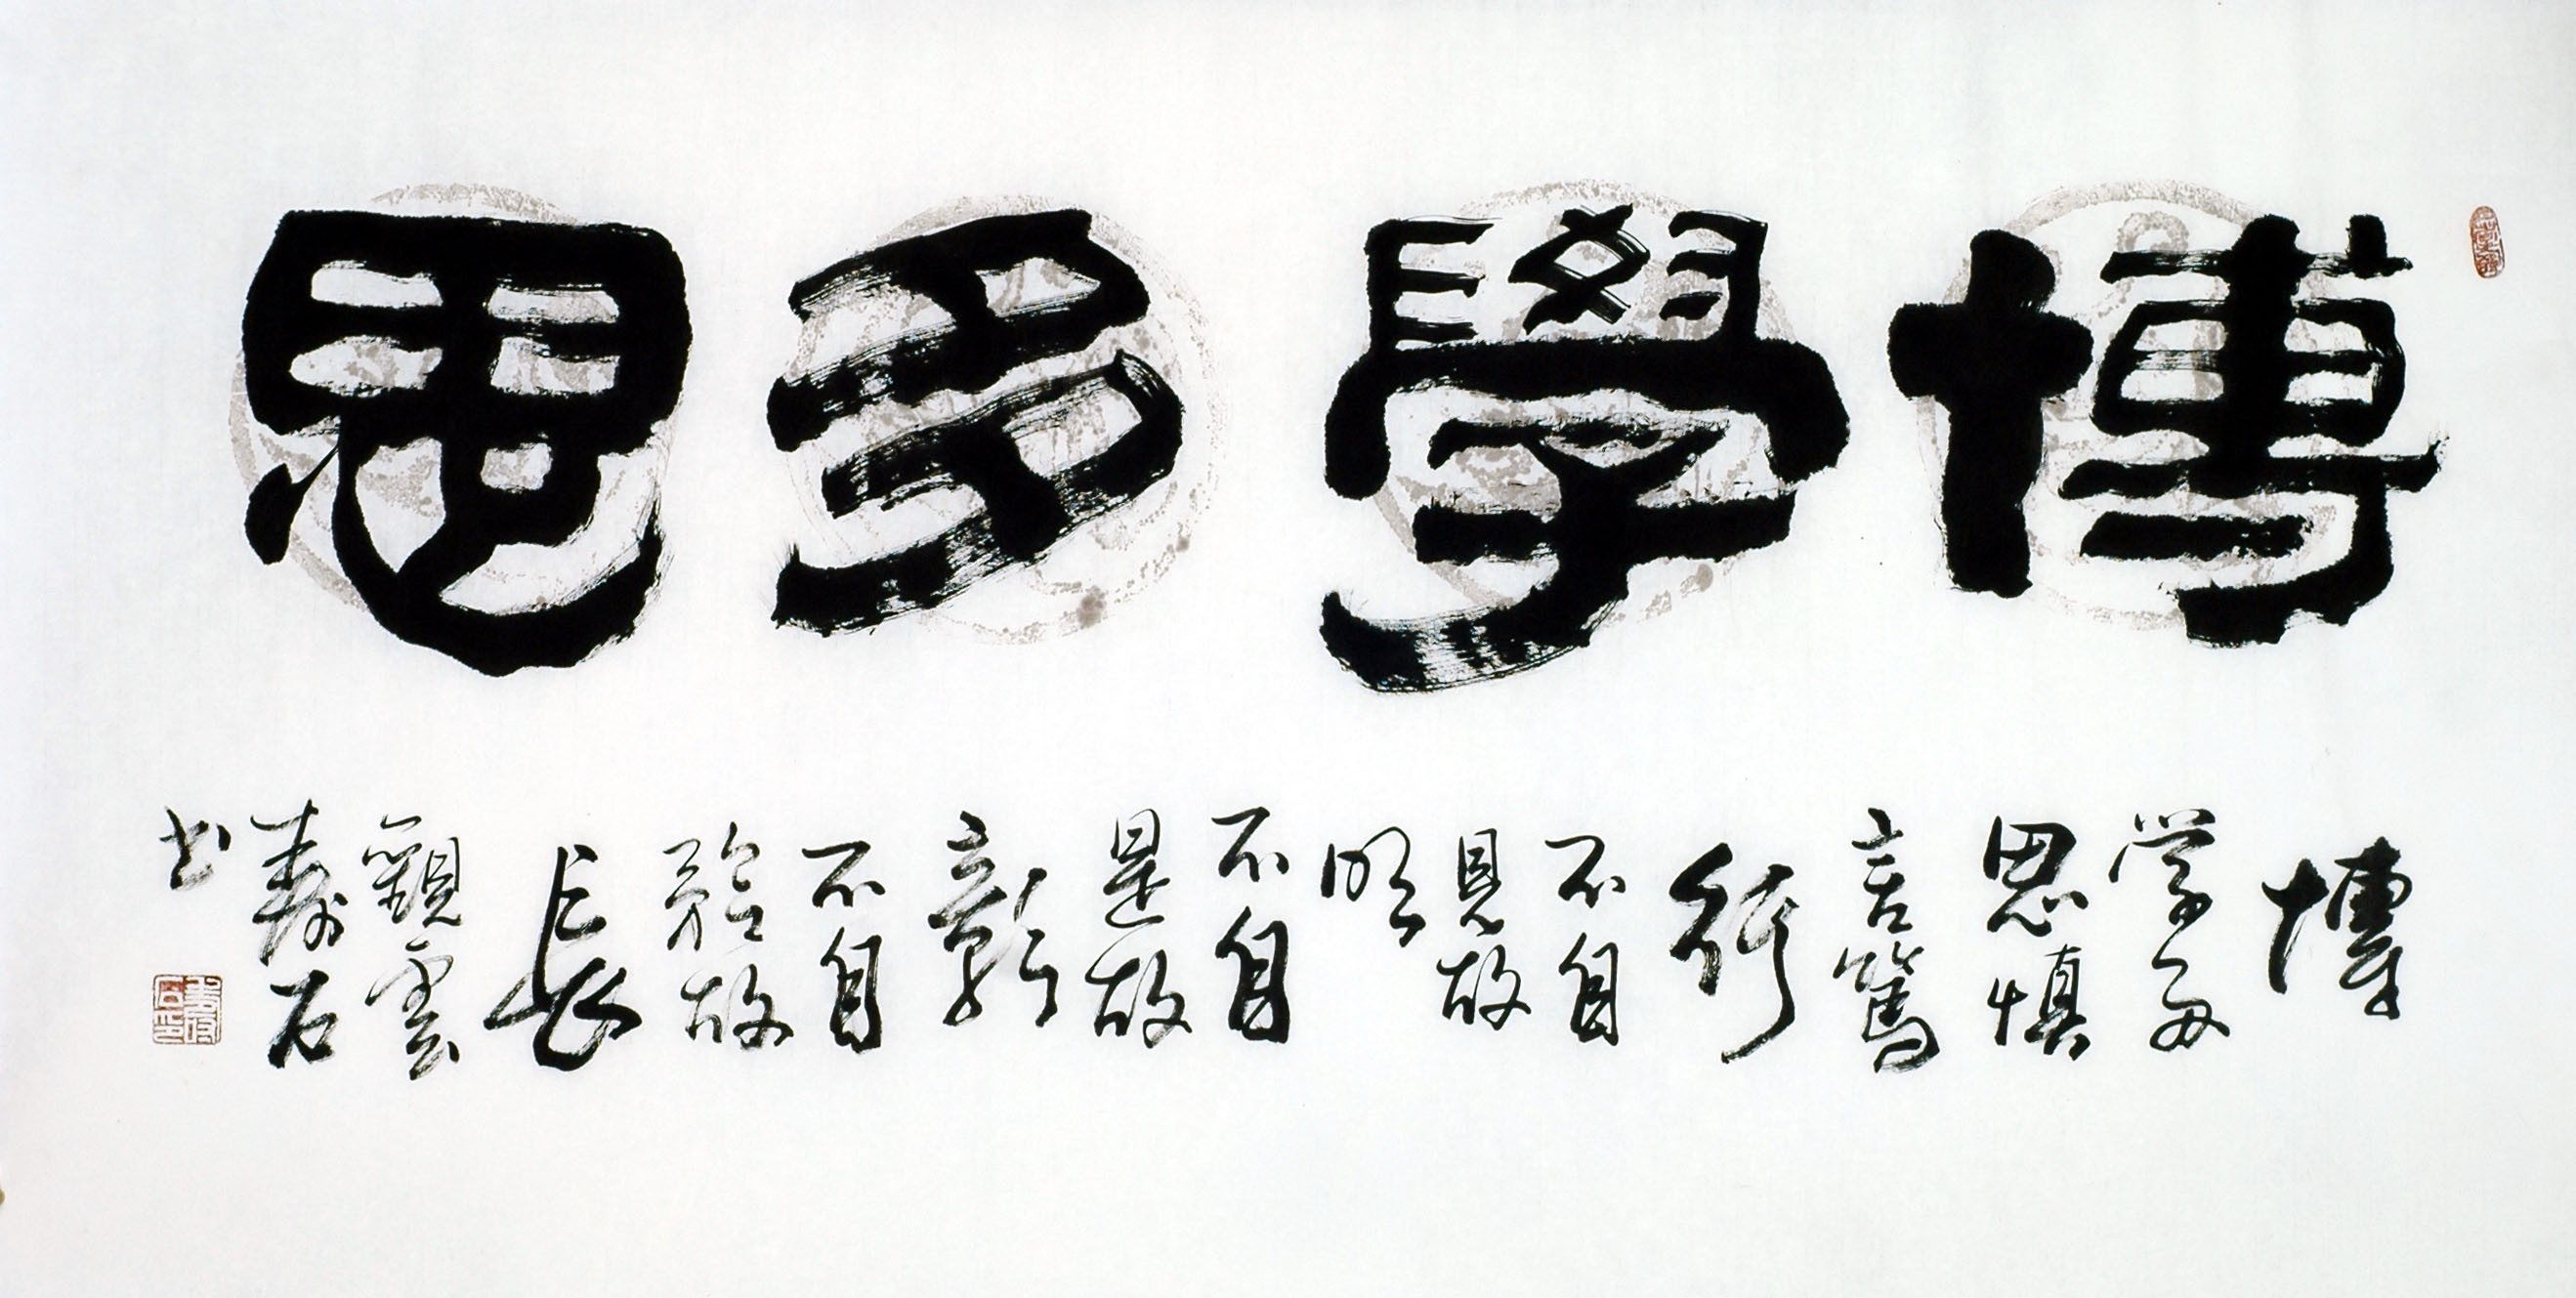 博學多思
博
学多
思慎
言篤
行
不自
見故
明
不自
是故
彰
不自
矜故
長
觀雲
壽石
书